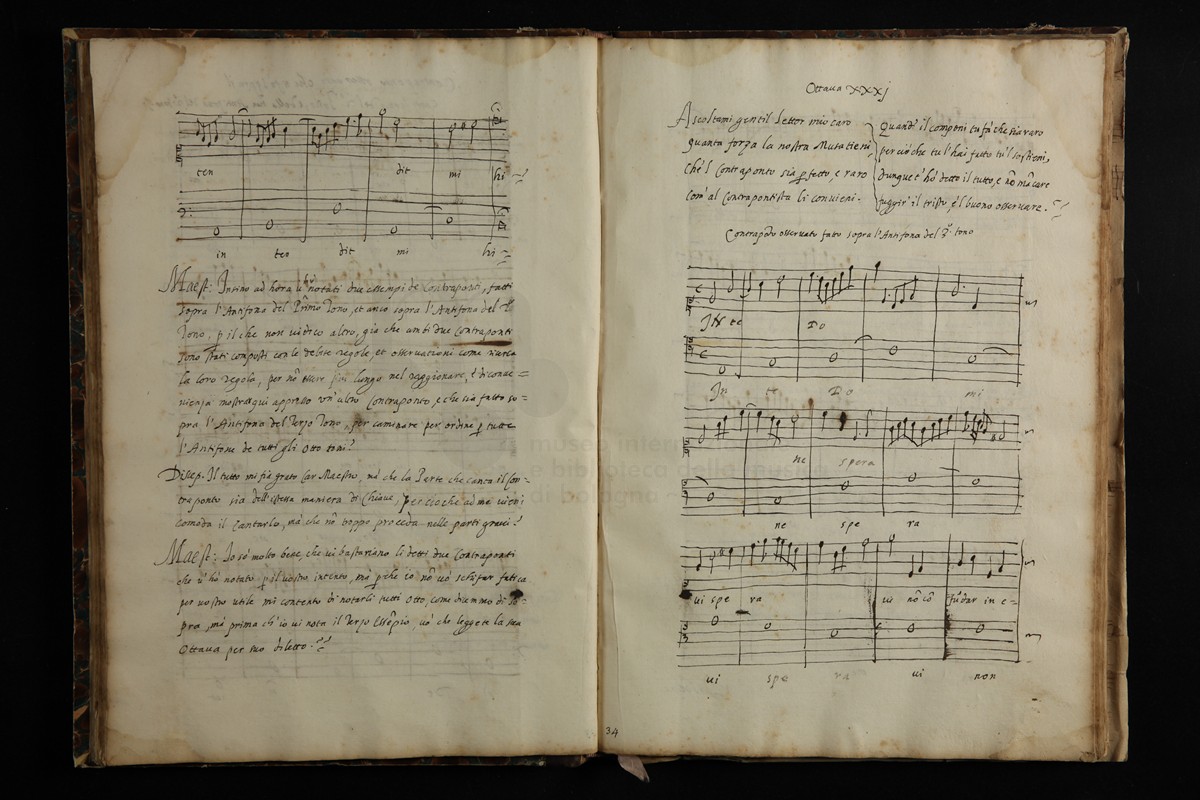 ten dit mi hi
in ten dit mi hi
Maest: Insino ad hora v'hò notati due essempi de Contraponti, fatti
sopra l'Antifona del Primo Tono, et anco sopra l'Antifona del
Tono, il che non vi dico altro, già che amti due Contraponti
sono stati composti con le debite regole, et osservationi come ricerca
la loro regola, per nō essere più lungo nel raggionare, è di conue=
nienza mostrarui appresso vn'altro Contraponto, e che sia fatto so=
pra l'Antifona del Terzo Tono, per caminare per ordine p tutte
l'Antifone de tutti gli Otto toni.
Discep: Il tutto mi sia grato Car Maestro, mà che la Parte che canta il Con=
traponto sia dell'istessa maniera di Chiaue, percioche ad me viene
comoda il Cantarlo, mà che nō troppo proceda nelle parti graui.
Maest: Io sò molto bene, che vi bastariano li detti due Contraponti
che v'hò notato p il vostro intento, mà p che io nō vò schifar fatica
per vostro vtile mi contento di notarli tutti Otto, come dicemmo di so=
pra, mà prima ch'io vi nota il Terzo Essēpio, vò che leggete la sua
Ottaua per suo diletto.
Ottaua XXXj
Ascoltami gentil Lettor mio caro
quanta forza la nostra Musa tieni,
Che'l Contraponto sia pfetto, e raro
Com'al Contrapontista li conuieni.
Quand' il componi tu fà che sia raro
perciò che tu l'hai fatto tu'l sostieni,
dunque t'hò detto il tutto, e nō mācare
fuggir' il tristo, e'l buono osseruare.
Contrapōto osseruato fatto sopra l'Antifona del 3º tono
IN te Do
In te Do mi
ne spera
ne spe ra
ui spe ra ui nō cō fūdar in e=
ui spe ra ui non
34
museo inter
e biblioteca della musica
di bologna